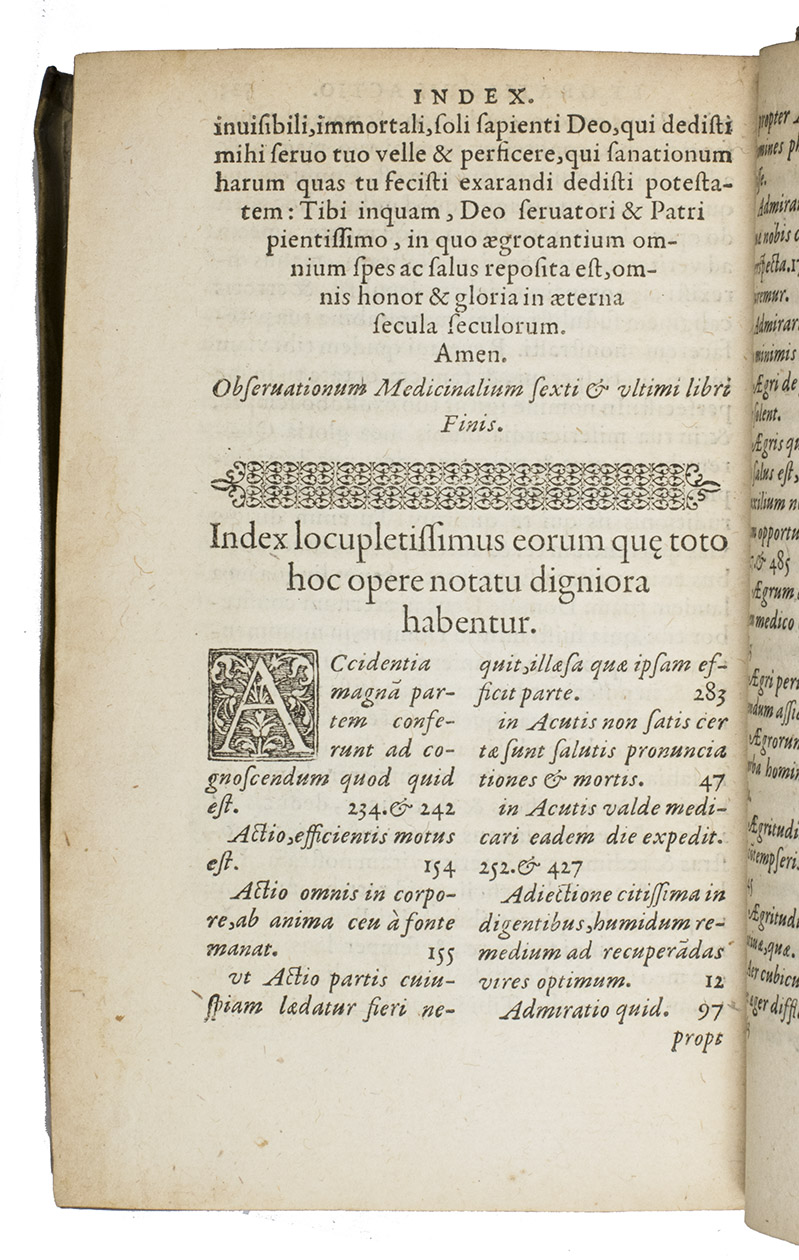 INDEX.
inuisibili, immortali, soli sapienti Deo, qui dedisti
mihi seruo tuo velle & perficere, qui sanationum
harum quas tu fecisti exarandi dedisti potesta-
tem: Tibi inquam, Deo seruatori & Patri
pientissimo, in quo ægrotantium om-
nium spes ac salus reposita est, om-
nis honor & gloria in æterna
secula seculorum.
Amen.
Obseruationum Medicinalium sexti & vltimi libri
Finis.
Index locupletissimus eorum quę toto
hoc opere notatu digniora
habentur.
ACcidentia
magnā par-
tem confe-
runt ad co-
gnoscendum quod quid
est. 234. & 242
Actio, efficientis motus
est. 154
Actio omnis in corpo-
re, ab anima ceu à fonte
manat. 155
vt Actio partis cuiu-
spiam lædatur fieri ne-
quit, illæsa quæ ipsam ef-
ficit parte. 283
in Acutis non satis cer
tæ sunt salutis pronuncia
tiones & mortis. 47
in Acutis valde medi-
cari eadem die expedit.
252. & 427
Adiectione citissima in
digentibus, humidum re-
medium ad recuperādas
vires optimum. 12
Admiratio quid. 97
propt
propter
mines
se.
Admirar
nobis
17
Admirar
minimis
Ægri de
solent.
Ægris
salus est,
opportu
& 485
Ægrum
medico
Ægri peri
Ægrorum
homin
Ægritudi
Ægritud
quæ.
cubicu
æger diffi